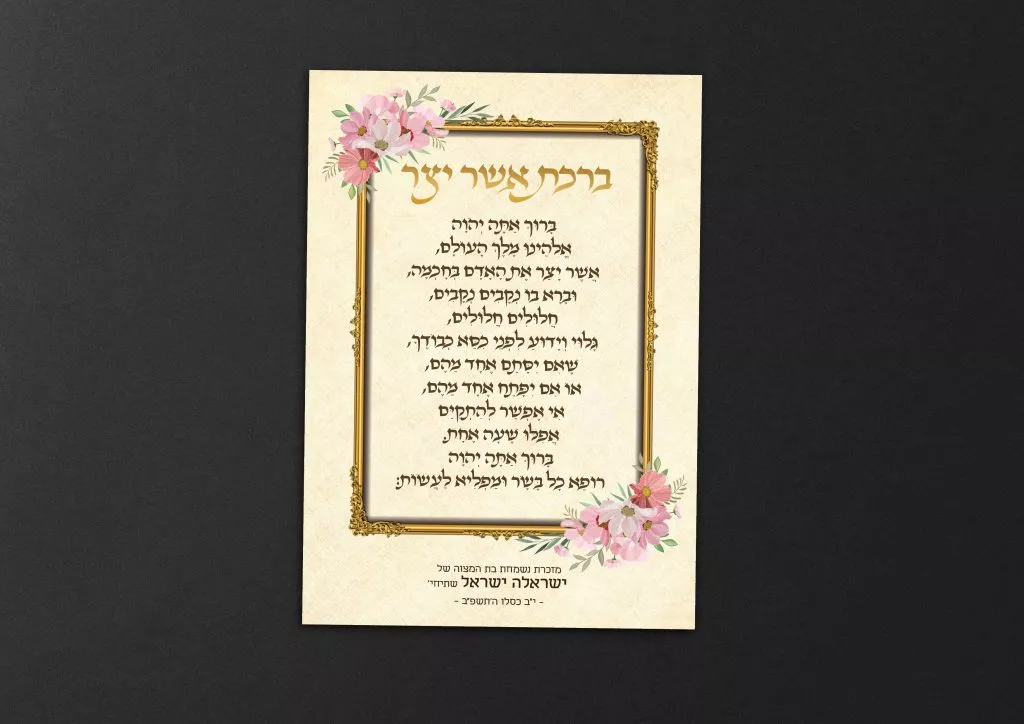 ברכת אשר יצר
בָּרוּךְ אַתָּה יְהוָה
אֱלֹהֵינוּ מֶלֶךְ הָעוֹלָם,
אֲשֶׁר יָצַר אֶת הָאָדָם בְּחָכְמָה,
וּבָרָא בוֹ נְקָבִים נְקָבִים,
חֲלוּלִים חֲלוּלִים,
גָּלוּי וְיָדוּעַ לִפְנֵי כִסֵּא כְבוֹדֶךָ,
שֶׁאִם יִסָּתֵם אֶחָד מֵהֶם,
אוֹ אִם יִפָּתֵחַ אֶחָד מֵהֶם,
אִי אֶפְשַׁר לְהִתְקַיֵּם
אֲפִלּוּ שָׁעָה אֶחָת.
בָּרוּךְ אַתָּה יְהוָה
רוֹפֵא כָל בָּשָׂר וּמַפְלִיא לַעֲשׂוֹת:
מזכרת נשמחת בת המצוה של
ישראלה ישראל שתיחי'
- י"ב כסלו ה'תשפ"ב -